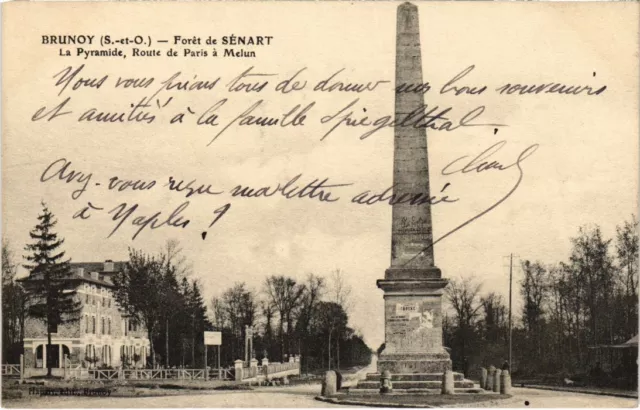 BRUNOY (S.-et-O.) — Forêt de SÉNART
La Pyramide, Route de Paris à Melun
Nous vous prions tous de donner nos bons souvenirs
et amitiés à la famille Spiegelthal.
Avez-vous reçu ma lettre adressée
à Naples ?